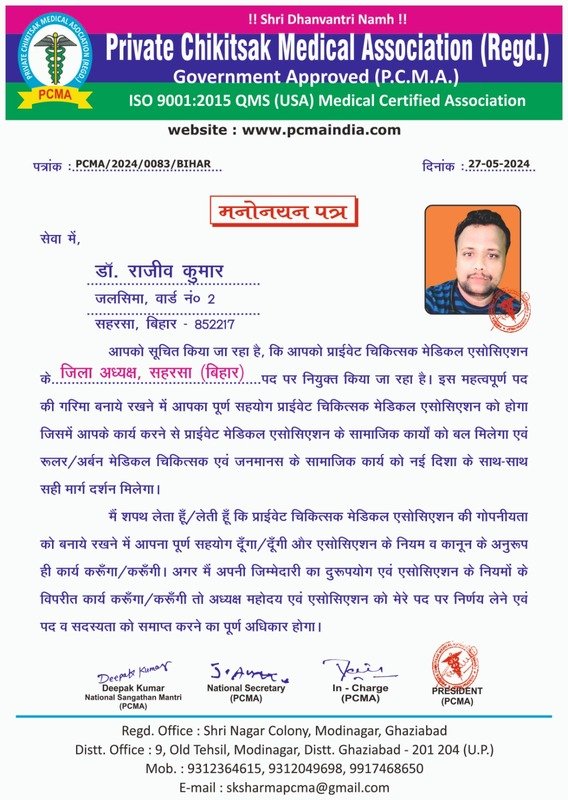 !! Shri Dhanvantri Namh !!
Private Chikitsak Medical Association (Regd.)
Government Approved (P.C.M.A.)
ISO 9001:2015 QMS (USA) Medical Certified Association
PRIVATE CHIKITSAK MEDICAL ASOCIATION (REGD.)
PCMA
website : www.pcmaindia.com
पत्रांक : PCMA/2024/0083/BIHAR दिनांक : 27-05-2024
मनोनयन पत्र
सेवा में,
डॉ. राजीव कुमार
जलसिमा, वार्ड नं० 2
सहरसा, बिहार - 852217
आपको सूचित किया जा रहा है, कि आपको प्राईवेट चिकित्सक मेडिकल एसोसिएशन
के जिला अध्यक्ष, सहरसा (बिहार) पद पर नियुक्त किया जा रहा है। इस महत्वपूर्ण पद
की गरिमा बनाये रखने में आपका पूर्ण सहयोग प्राईवेट चिकित्सक मेडिकल एसोसिएशन को होगा
जिसमें आपके कार्य करने से प्राईवेट मेडिकल एसोसिएशन के सामाजिक कार्यो को बल मिलेगा एवं
रूलर/अर्बन मेडिकल चिकित्सक एवं जनमानस के सामाजिक कार्य को नई दिशा के साथ-साथ
सही मार्ग दर्शन मिलेगा।
मैं शपथ लेता हूँ/लेती हूँ कि प्राईवेट चिकित्सक मेडिकल एसोसिएशन की गोपनीयता
को बनाये रखने में आपना पूर्ण सहयोग दूँगा/दूँगी और एसोसिएशन के नियम व कानून के अनुरूप
ही कार्य करूँगा/करूँगी। अगर मैं अपनी जिम्मेदारी का दुरूपयोग एवं एसोसिएशन के नियमों के
विपरीत कार्य करूँगा/करूँगी तो अध्यक्ष महोदय एवं एसोसिएशन को मेरे पद पर निर्णय लेने एवं
पद व सदस्यता को समाप्त करने का पूर्ण अधिकार होगा।
Deepak Kumar
Deepak Kumar National Secretary In - Charge PRESIDENT
National Sangathan Mantri (PCMA) (PCMA) (PCMA)
(PCMA)
Regd. Office : Shri Nagar Colony, Modinagar, Ghaziabad
Distt. Office : 9, Old Tehsil, Modinagar, Distt. Ghaziabad - 201 204 (U.P.)
Mob. : 9312364615, 9312049698, 9917468650
E-mail : sksharmapcma@gmail.com